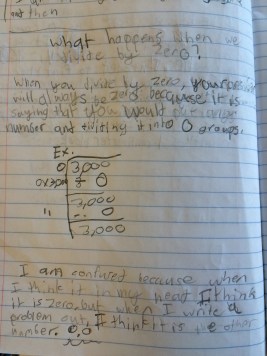 and then
What happens when we
divide by zero?
When you divide by zero, your
will always be zero because it is
saying that you would put
number and into 0 groups.
Ex.
0 3,000
÷ 0
3,000
- 0
3,000
I am confused because when
I think it in my head I think
it is zero, but when I write a
problem out, I think it is other
number.